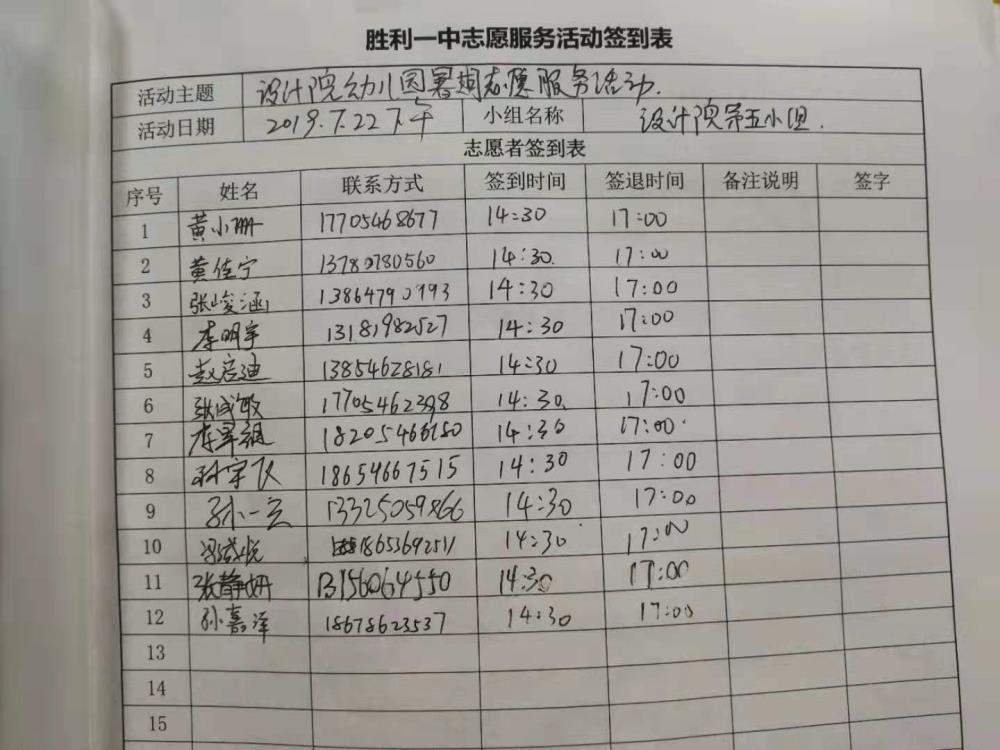 胜利一中志愿服务活动签到表
活动主题 设计院幼儿园暑期志愿服务活动.
活动日期 2019.7.22下午 小组名称 设计院第五小组.
志愿者签到表
序号 姓名 联系方式 签到时间 签退时间 备注说明 签字
1 黄小珊 17705468677 14:30 17:00
2 黄佳宁 13780780560 14:30. 17:00
3 张峻涵 13864790993 14:30 17:00
4 李明宇 13181982527 14:30 17:00
5 赵启迪 13854628181 14:30 17:00
6 张成敏 17705462398 14:30. 17:00
7 18205466150 14:30 17:00.
8 18654667515 14:30 17:00
9 孙一 13325059866 14:30 17:00
10 18653692511 14:30 17:00
11 张静妍 13156064550 14:30 17:00
12 孙嘉泽 18678623537 14:30 17:00
13
14
15